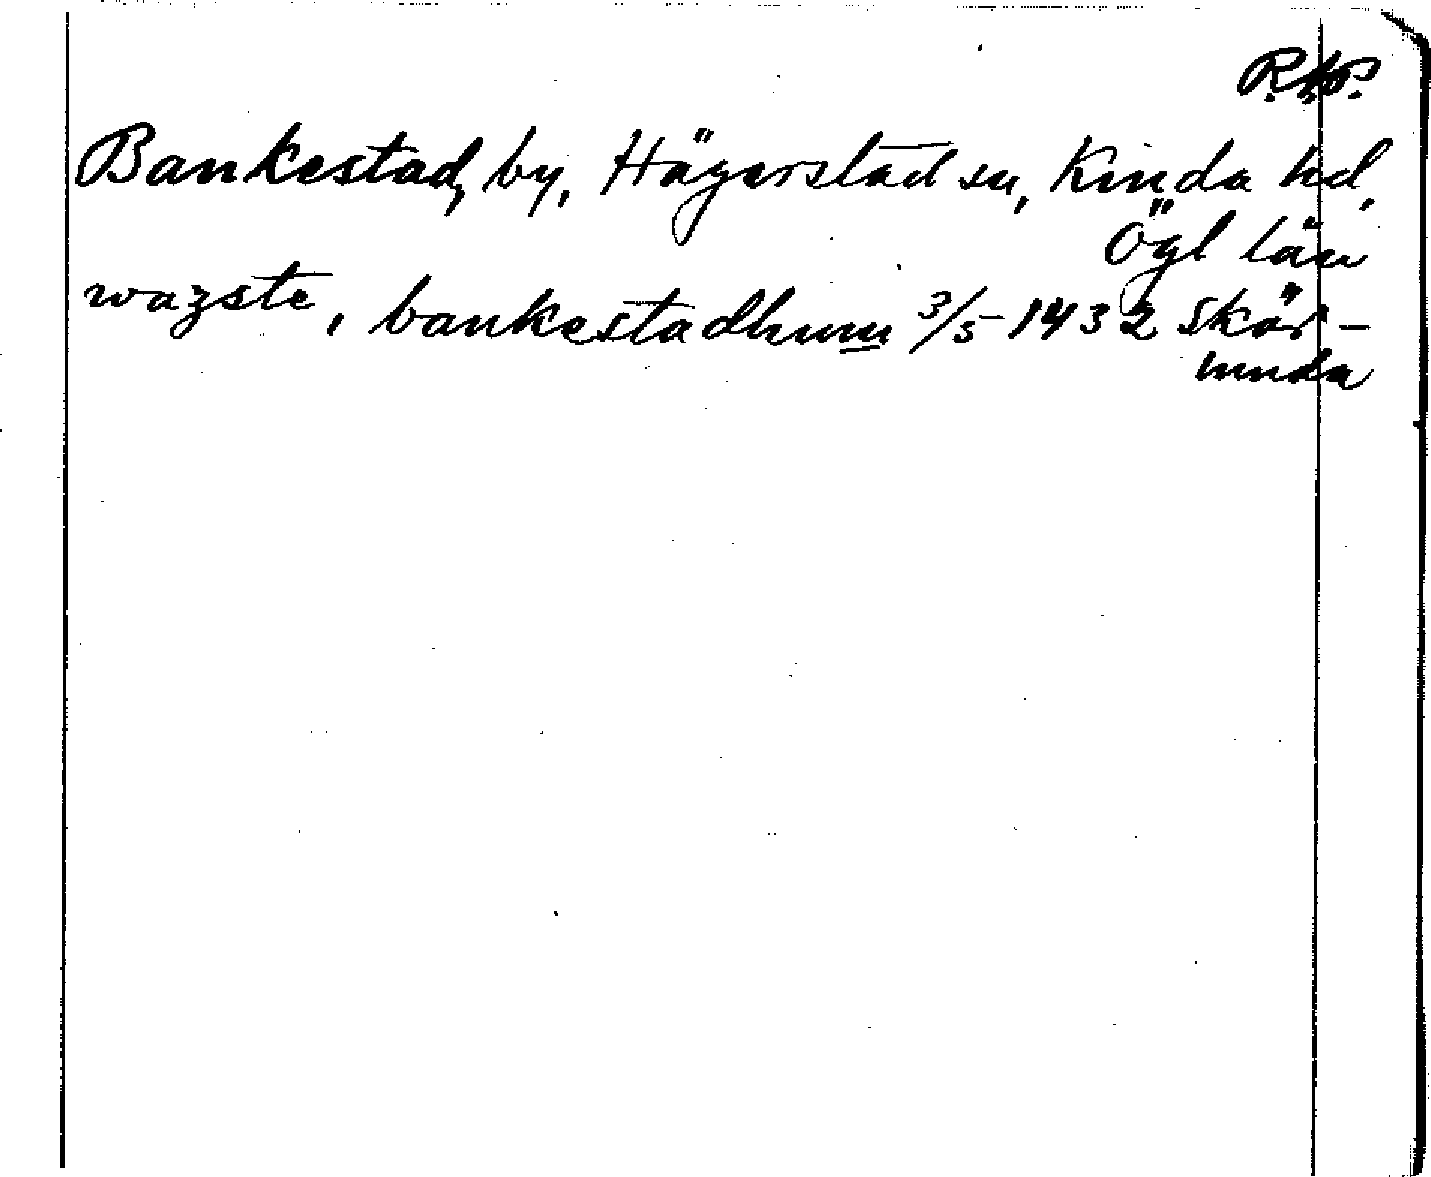 R.A.P.
Bankestad, by, Hägerstad sn, Kinda hd,
Ögl län
wazste, bankestadhum 3/5 1432 Skör-
unda